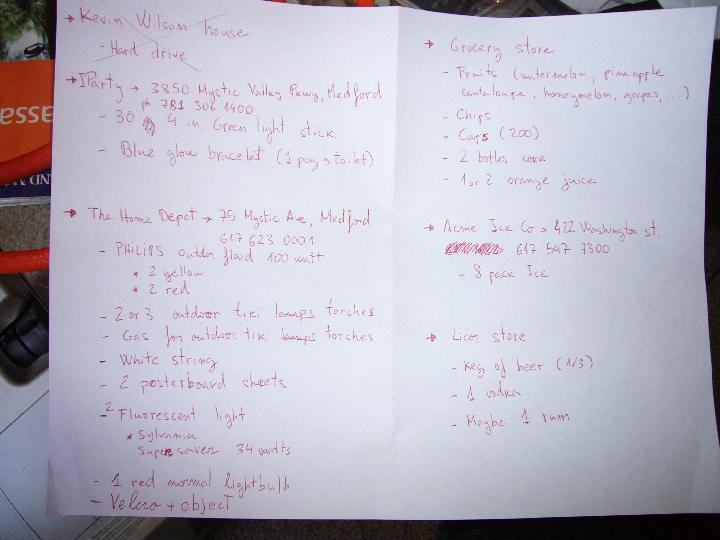 → Kevin Wilson house
- Hard drive
→ IParty → 3850 Mystic Valley Pkwy, Medford
ph: 781 306 1400
- 30 4 in Green light stick
- Blue glow bracelet (1 pug → toilet)
→ The Home Depot → 75 Mystic Ave, Medford
617 623 0001
- PHILIPS outdor flood 100 watt
* 2 yellow
* 2 red
- 2 or 3 outdoor tiki lamps torches
- Gas for outdoor tiki lamps torches
- White string
- 2 posterboard sheets
- 2 Fluorescent light
* Sylvania
Supersaver 34 watts
- 1 red normal lightbulb
- Velcro + object
→ Grocery store
- Fruits (watermelon, pineapple
cantaloupe, honeymelon, grapes, ...)
- Chips
- Cups (200)
- 2 botles coke
- 1 or 2 orange juice
→ Acme Ice Co → 422 Washington st,
617 547 7300
- 8 pack Ice
→ Licor store
- Keg of beer (1/3)
- 1 vodka
- Maybe 1 rum
esse